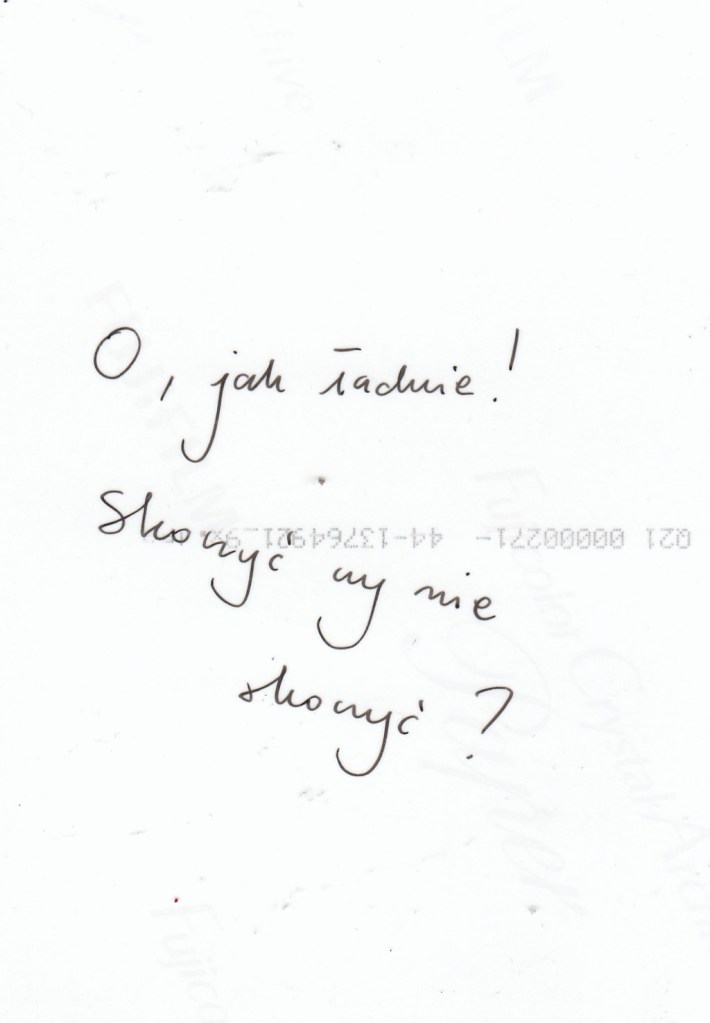 O, jak ładnie!
Skoczyć czy nie
skoczyć?
Q21 00000271- 44-13764921_9